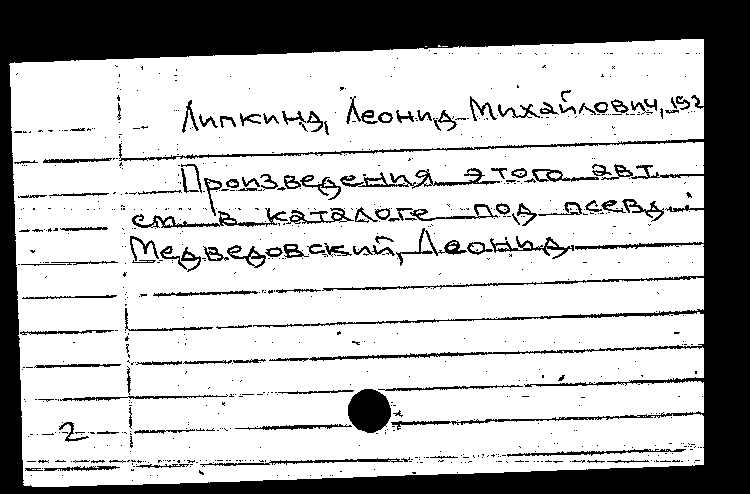 Липкинд, Леонид Михайлович, 192
Произведения этого авт.
см. в каталоге под псевд.:
Медведовский, Леонид
2